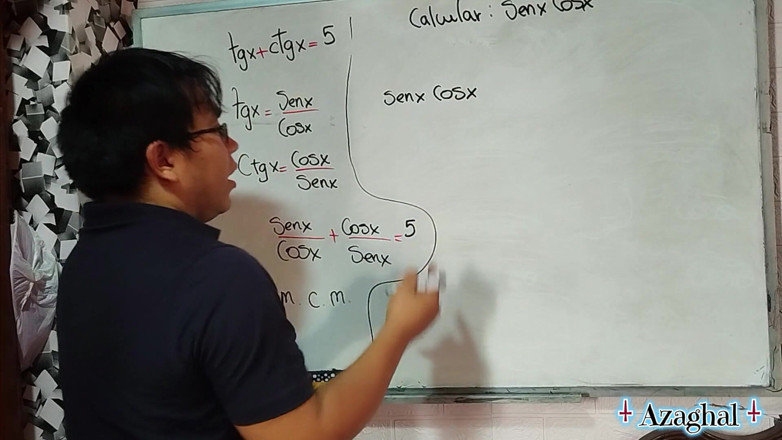 tgx+ctgx=5
tgx= Senx
Cosx
Ctgx= Cosx
Senx
Senx + Cosx = 5
Cosx Senx
m.c.m.
Calcular: Senx Cosx
Senx Cosx
Azaghal